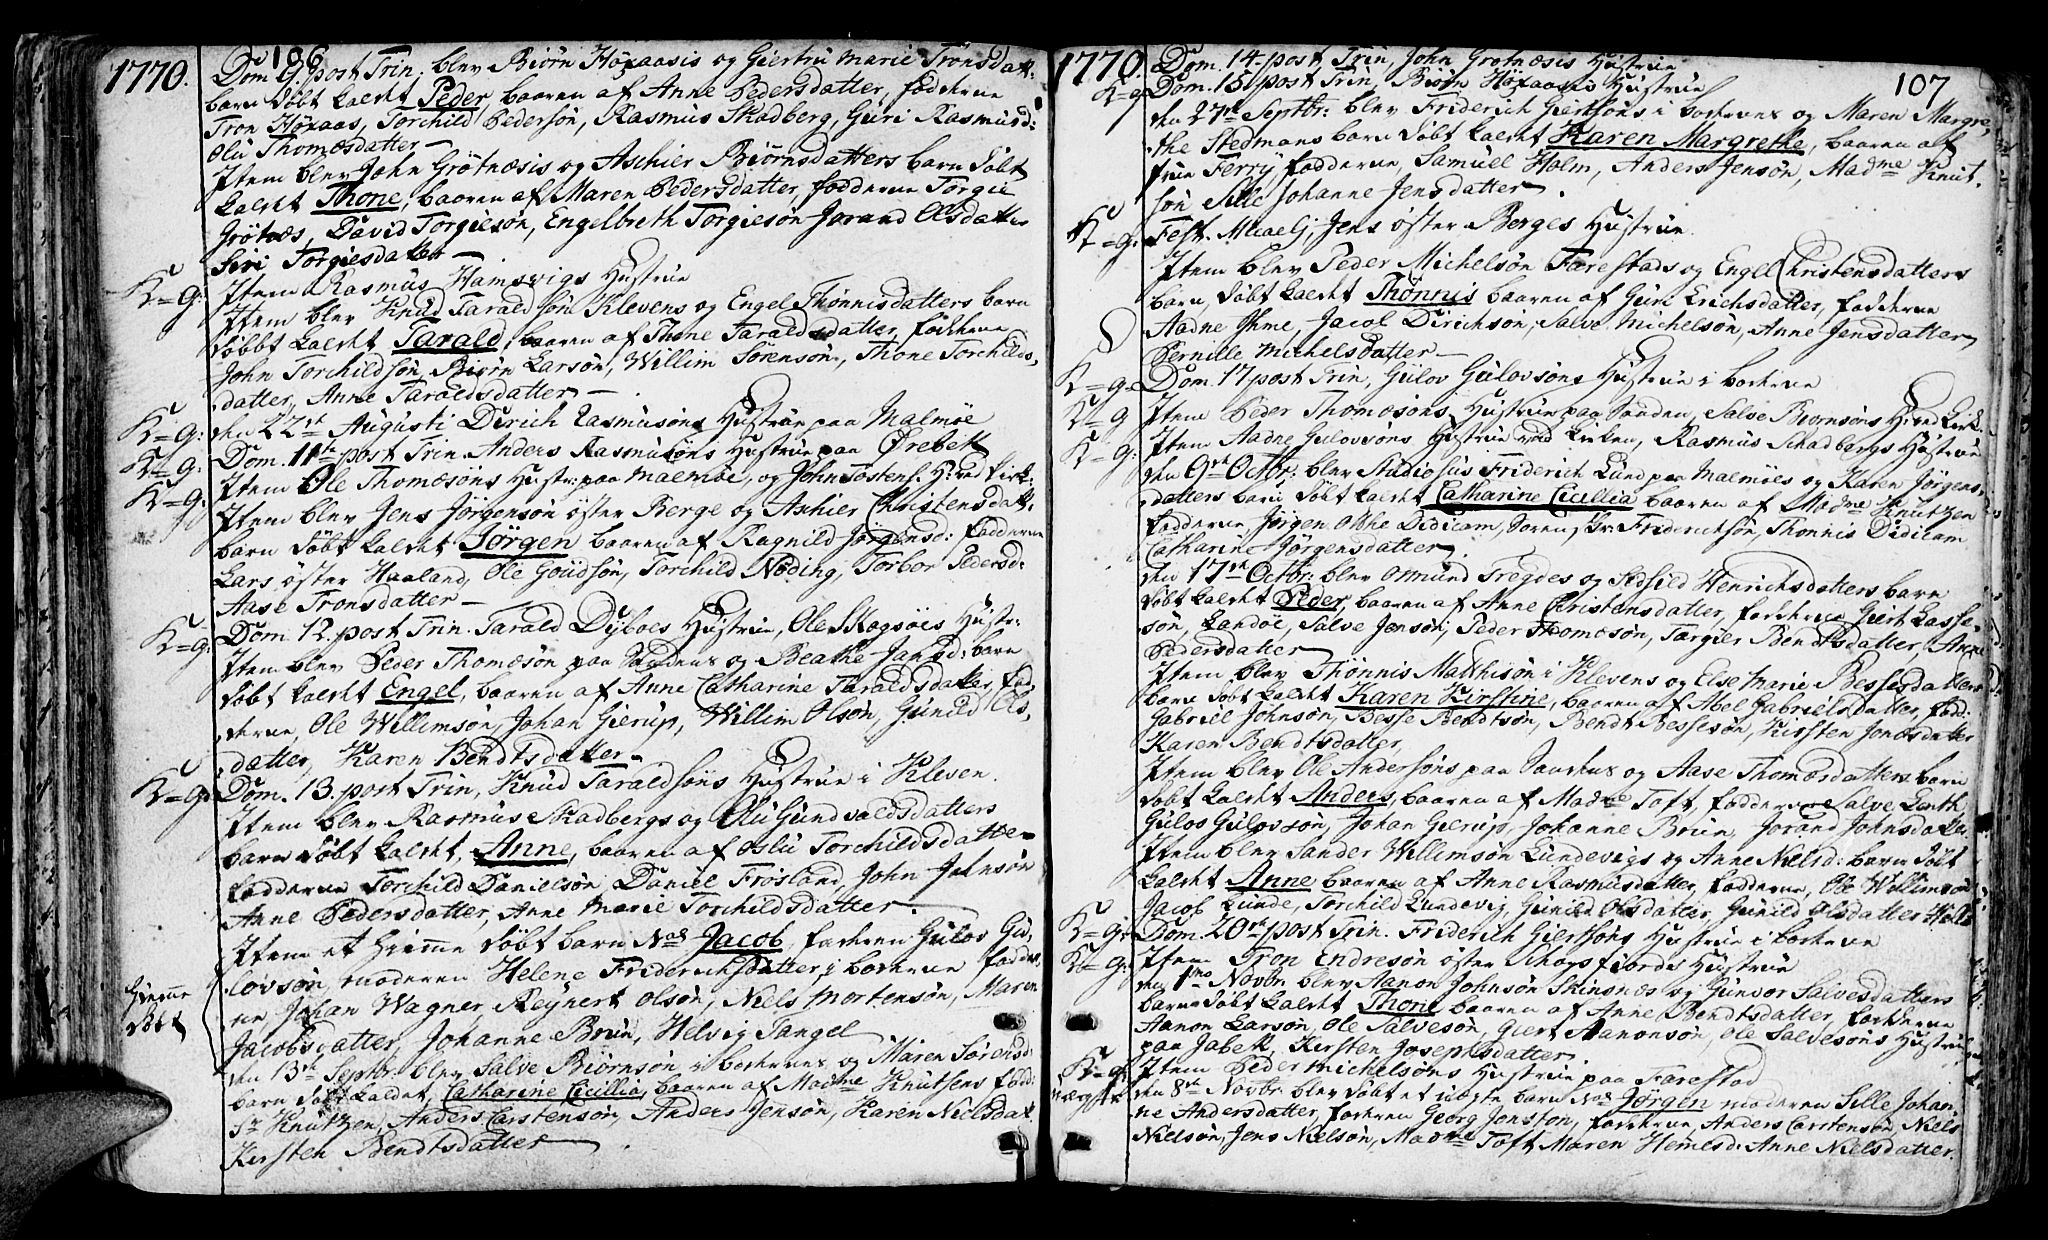 106
1770.
Dom. 9. post Trin, blev Biørn Höxaasis og Giertru Marie Tronsdatt:
barn døbt kaldt Peder, baaren af Anne Pedersdatter, fadderne
Tron Höxaas, Torchild Pedersön, Rasmus Skadberg, Guri Rasmusd:
Oli Thomæsdatter
Item blev John Grötnæsis og Aschier Biörnsdatters barn döbt
kaldt Thone, baaren af Maren Pedersdatter, fadderne Torgie
Grötnæs, David Torgiesön, Engelbreth Torgiesön Jorand Olsdatter
Siri Torgiesdatter
K=g: Item Rasmus Hamsvigs Hustrue
Item blev Knud Taraldsöns Klevens og Engel Thönnisdatters barn
döbbt kaldt Tarald, baaren af Thone Taraldsdatter, fadderne
John Torchildsön, Biörn Larsön, Willim Sörensön, Thone Torchilds,
datter, Anne Taraldsdatter
K=g: den 22de Augusti Dirich Rasmusöns Hustrue paa Malmöe
K=g: Dom. 11te post Trin. Anders Rasmusöns Hustrue paa Örebek
K=g: Item Ole Thomæsöns Hustr: paa Malmöe, og John Tostens. H: ved Kirk:
Item blev Jens Jörgensön öster Berge og Aschier Christensdatt.
barn döbt kaldt Jörgen baaren af Ragnild Jörgensd: fadderne
Lars öster Haaland, Ole Goudsön, Torchild Nöding, Torbor Pedersd:
Aase Tronsdatter
K=g: Dom. 12. post Trin. Tarald Dyboes Hustrue, Ole Skogsöes Hustr:
Item blev Peder Thomæsön paa Sandens og Beathe Jansd: barn
döbt kaldt Engel, baaren af Anne Catharine Taraldsdatter, fad=
derne, Ole Willimsön, Johan Gierup, Willim Olsön, Gunild Ols,
datter, Karen Bendtsdatter
K=g: Dom. 13. post Trin, Knud Taraldsöns Hustrue i Kleven.
Item blev Rasmus Skadbergs og Oli Gundvaldsdatters
barn döbt kaldt, Anne, baaren af Oslu Torchildsdatter
fadderne Torchild Danielsön, Daniel Frösland, John Johnsön
Anne Pedersdatter, Anne Marie Torchildsdatter.
Hiemme döbt
Item et hiemme döbt barn Nos Jacob, faderen Gulov Gu,
lovsön, moderen Helene Friderichsdatter, i borkerne fadder,
ne, Johan Wagner, Reynert Olsön, Niels Mortensön, Maren
Jacobsdatter, Johanne Brun, Helvig Tangel
den 13de Septbr. blev Salve Biörnsön i borkernes og Maren Sörensd:
barn döbt kaldet, Catharine Cicillia, baaren af Madme Knutsens fadd:
Sr Knutzen, Anders Carstensön, Anders Jensön, Karen Nielsdat.
Kirsten Bendtsdatter
1770.
107
Dom. 14. post Trin, John Grotnæsis Hustrue
K=g Dom. 15. post Trin, Biörn Höxaases Hustrue
den 27de Septbr: blev Friderich Giertsöns i borkernes og Maren Margre,
the Stedmans barn döbt kaldt Karen Margrethe, baaren af
frue Ferry fadderne, Samuel Holm, Anders Jensön, Madme Knut,
sön Sille Johanne Jensdatter.
K=g: Fest. Micaelj, Jens öster Berges Hustrue.
Item blev Peder Michelsön Farestads og Engel Christensdatters
barn, döbt kaldt Thönnis baaren af Guri Erichsdatter, fadderne
Aadne Ihme, Jacob Dirichsön, Salve Michelsön, Anne Jensdatter
Pernille Michelsdatter
K=g: Dom. 17 post Trin, Gulov Gulovsöns Hustrue i borkerne
K=g Item Peder Thomæsöns Hustrue paa Sanden, Salve Biornsöns H: ved Kirk:
K=g: Item Aadne Gulovsöns Hustrue ved Kirken, Rasmus Skadbergs Hustrue
den 9de Octbr: blev Studiosus Friderich Lund paa Malmöes og Karen Jörgens,
datters barn döbt kaldt Catharine Cicillia baaren af Madme Knutzen
fadderne, Jörgen Okke Didicam, Soren, Kr: Friderichsön, Thonnis Didicam
Catharine Jörgensdatter.
den 17de Octbr: blev Omund Tregdes og Sidsild Henrichsdatters barn
döbt kaldt Peder, baaren af Anne Christensdatter, fadderne Giert Lasse,
sön, Landöe, Salve Jensön, Peder Thomæsön, Targier Bendtsdatter, Anne
Pedersdatter
Item blev Thönnis Matthisön i Klevens og Else Marie Bessesdatters
barn döbt kaldt Karen Kirstine, baaren af Abel Gabrielsdatter, fadd:
Gabriel Johnsön, Besse Bendtsön, Bendt Bessesön, Kirsten Jonæsdatter
Karen Bendtsdatter,
Item blev Ole Andersöns paa Vaarhus og Aase Thomæsdatters barn
döbt kaldt Anders, baaren af Madme Toft, fadderne Salve Lunth
Gulov Gulovsön, Johan Gierup, Johanne Brun, Jorand Johnsdatter,
Item blev Sander Willimsön Lundevigs og Anne Nielsd: barn döbt
kaldt Anne baaren af Anne Rasmusdatter, fadderne, Ole Willimsön
Jacob Lunde, Torchild Lundevig, Gunild Olsdatter, Gunild Olsdatter Holte
K=g: Dom. 20de post Trin. Friderich Giertsöns Hustrue i borkerne
K=g: Item Tron Endresön öster Schogsfiords Hustrue
den 1mo Novbr. blev Aanon Johnsön Skinsnæs og Gunvor Salvesdatters
barn döbt kaldt Thone baaren af Anne Bendtsdatter, fadderne
Aanon Larsön, Ole Salvesön, Giert Aanonsön, Ole Salvesöns Hustrue
paa Jabek, Kirsten Josephsdatter.
K=g: Item Peder Michelsöns Hustrue paa Farestad
den 8de Novbr. blev döbt et uægte barn Nos Jörgen moderen Sille Johan,
ne Andersdatter, faderen Georg Jonston, fadderne, Anders Carstensön, Niels
Nielsön, Jens Nielsön, Madme Toft Maren Hemesd: Anne Nielsdatter.